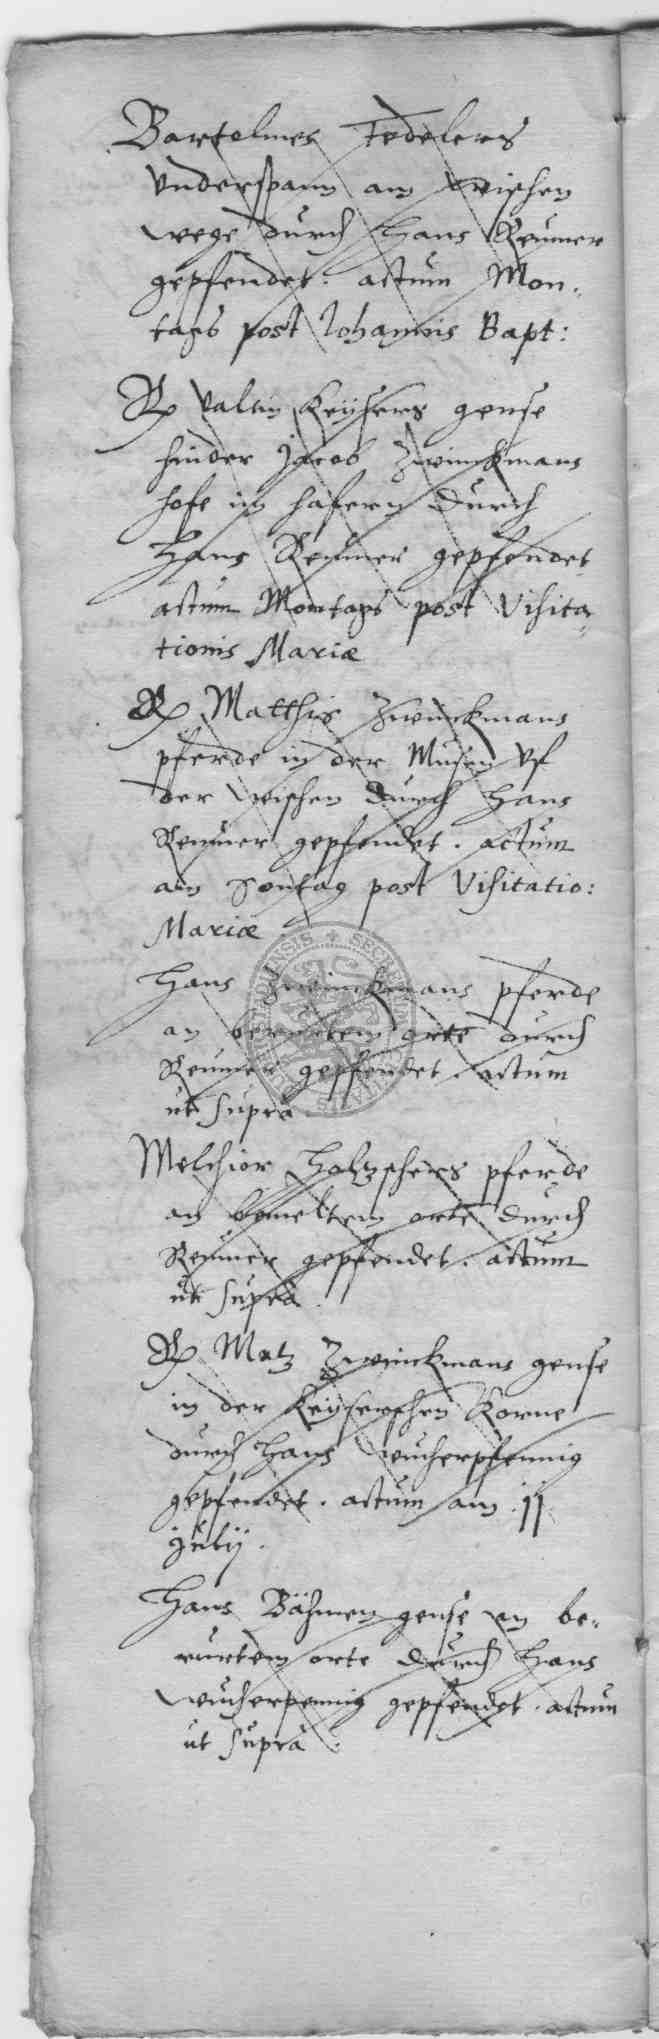 Bartolmes Tedelers
Vnderspann am wischen
wege durch Hans Reumer
gepfendet. actum Mon-
tags post Johannis Bapt:
Rp Valtin Keysers gense
hinder Jacob Zwinckmans
hofe im hafern durch
Hans Reumer gepfendet
actum Montags post Visita-
tionis Mariæ
Rp Matthis Zwinckmans
pferde in der Musen vf
der wischen durch Hans
Reumer gepfendet. actum
am Sontag post Visitatio:
Mariæ
Hans Zwinckmans pferde
an berurtem orte durch
Reumer gepfendet. actum
ut supra
Melchior Holtzschers pferde
an bemeltem orte durch
Reumer gepfendet. actum
ut supra
Rp Matz Zwinckmans gense
in der Keyserschen Korne
durch Hans wucherpfennig
gepfendet. actum am jj
July.
Hans Bähmen gense an be-
rurtem orte durch Hans
wucherpennig gepfendet. actum
ut supra.